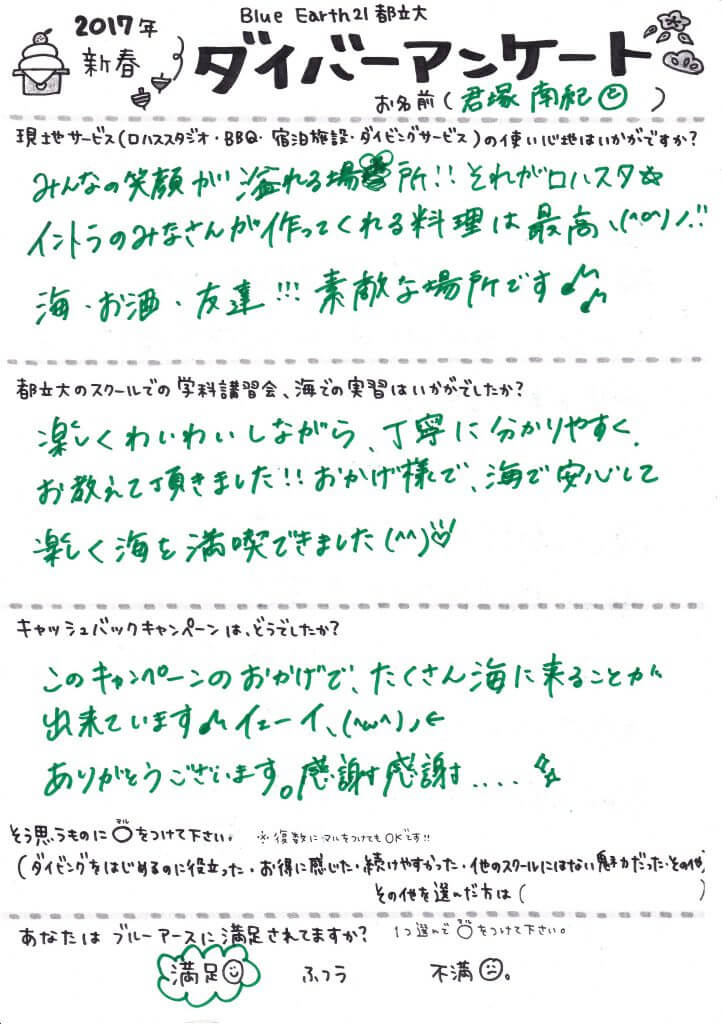 2017年
新春
Blue Earth21 都立大
ダイバーアンケート
お名前 ( 君塚 南紀 )
現地サービス(ロハススタジオ・BBQ・宿泊施設・ダイビングサービス)の使い心地はいかがですか?
みんなの笑顔が溢れる場所!! それがロハスタ☆
イントラのみなさんが作ってくれる料理は最高ヽ(^o^)ノ!!
海・お酒・友達!!! 素敵な場所です♪♪
都立大のスクールでの学科講習会、海での実習はいかがでしたか?
楽しくわいわいしながら、丁寧に分かりやすく、
お教えて頂きました!! おかげ様で、海で安心して
楽しく海を満喫できました(^^)♡
キャッシュバックキャンペーンは、どうでしたか?
このキャンペーンのおかげで、たくさん海に来ることが
出来ています♪イェーイヽ(^ω^)ノ
ありがとうございます。感謝感謝....☆
そう思うものに○マルをつけて下さい。 ※複数にマルをつけてもOKです!!
(ダイビングをはじめるのに役立った・お得に感じた・続けやすかった・他のスクールにはない魅力だった・その他)
その他を選んだ方は( )
あなたは ブルーアースに満足されてますか? 1つ選んで○マルをつけて下さい。
満足 ふつう 不満。